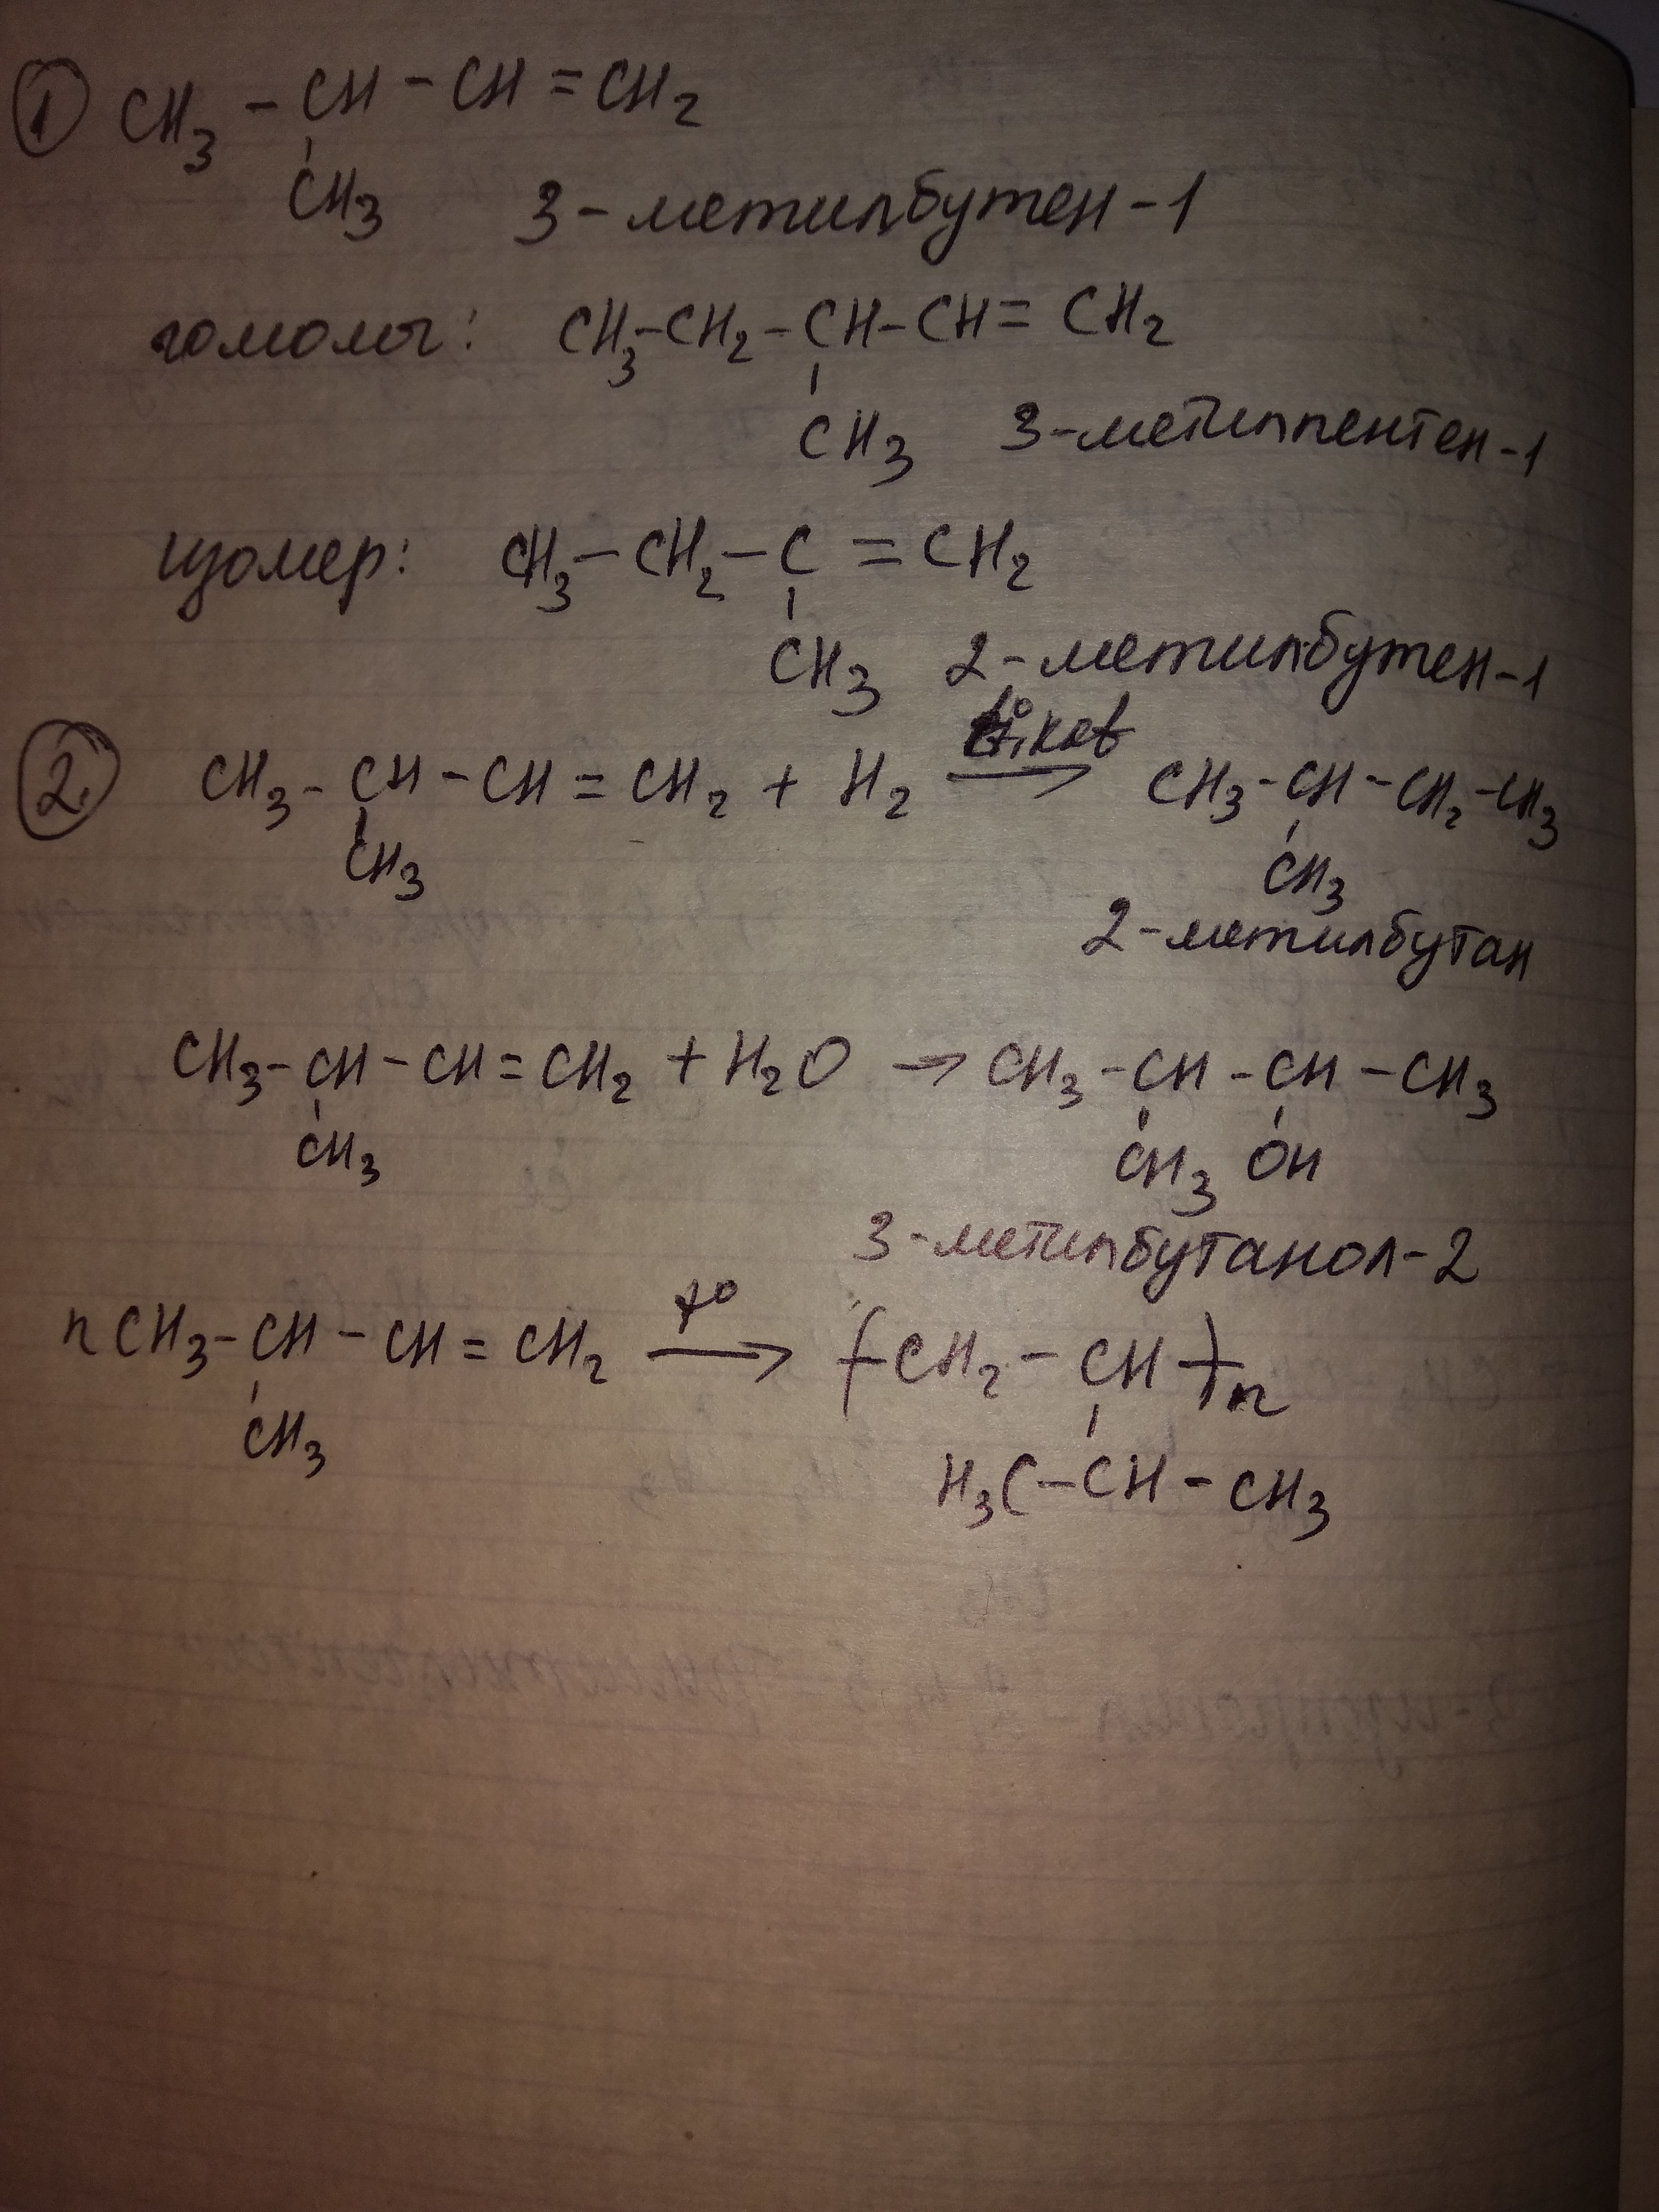 1 CH₃ - CH - CH = CH₂
CH₃ 3-метилбутен-1
гомолог: CH₃-CH₂-CH-CH=CH₂
CH₃ 3-метилпентен-1
изомер: CH₃-CH₂-C=CH₂
CH₃ 2-метилбутен-1
2. CH₃-CH-CH=CH₂ + H₂ t°, kat → CH₃-CH-CH₂-CH₃
CH₃ CH₃
2-метилбутан
CH₃-CH-CH=CH₂ + H₂O → CH₃-CH-CH-CH₃
CH₃ CH₃ OH
3-метилбутанол-2
nCH₃-CH-CH=CH₂ t° → (-CH₂-CH-)n
CH₃
H₃C-CH-CH₃